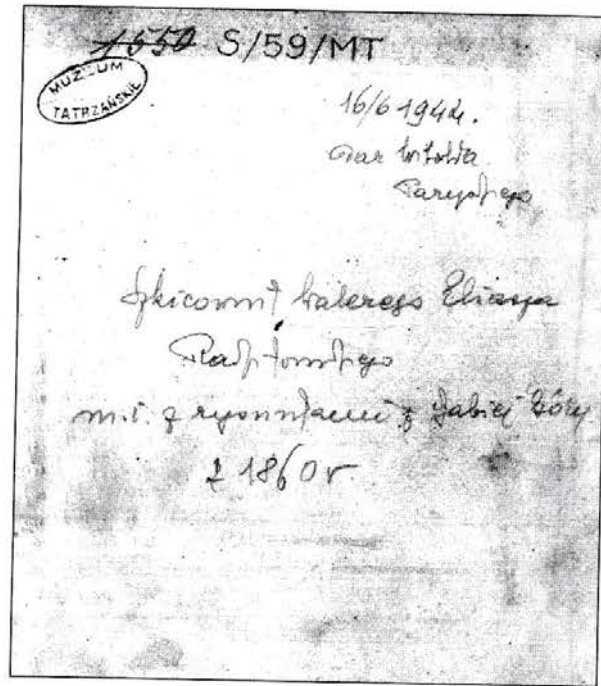 1550 S/59/MT
MUZEUM
TATRZAŃSKIE
16/6 1944.
Dar Witolda
Paryskiego
Szkicownik Walerego Eliasza
Radzikowskiego
m.i. z rysunkami z Babiej Góry
z 1860 r